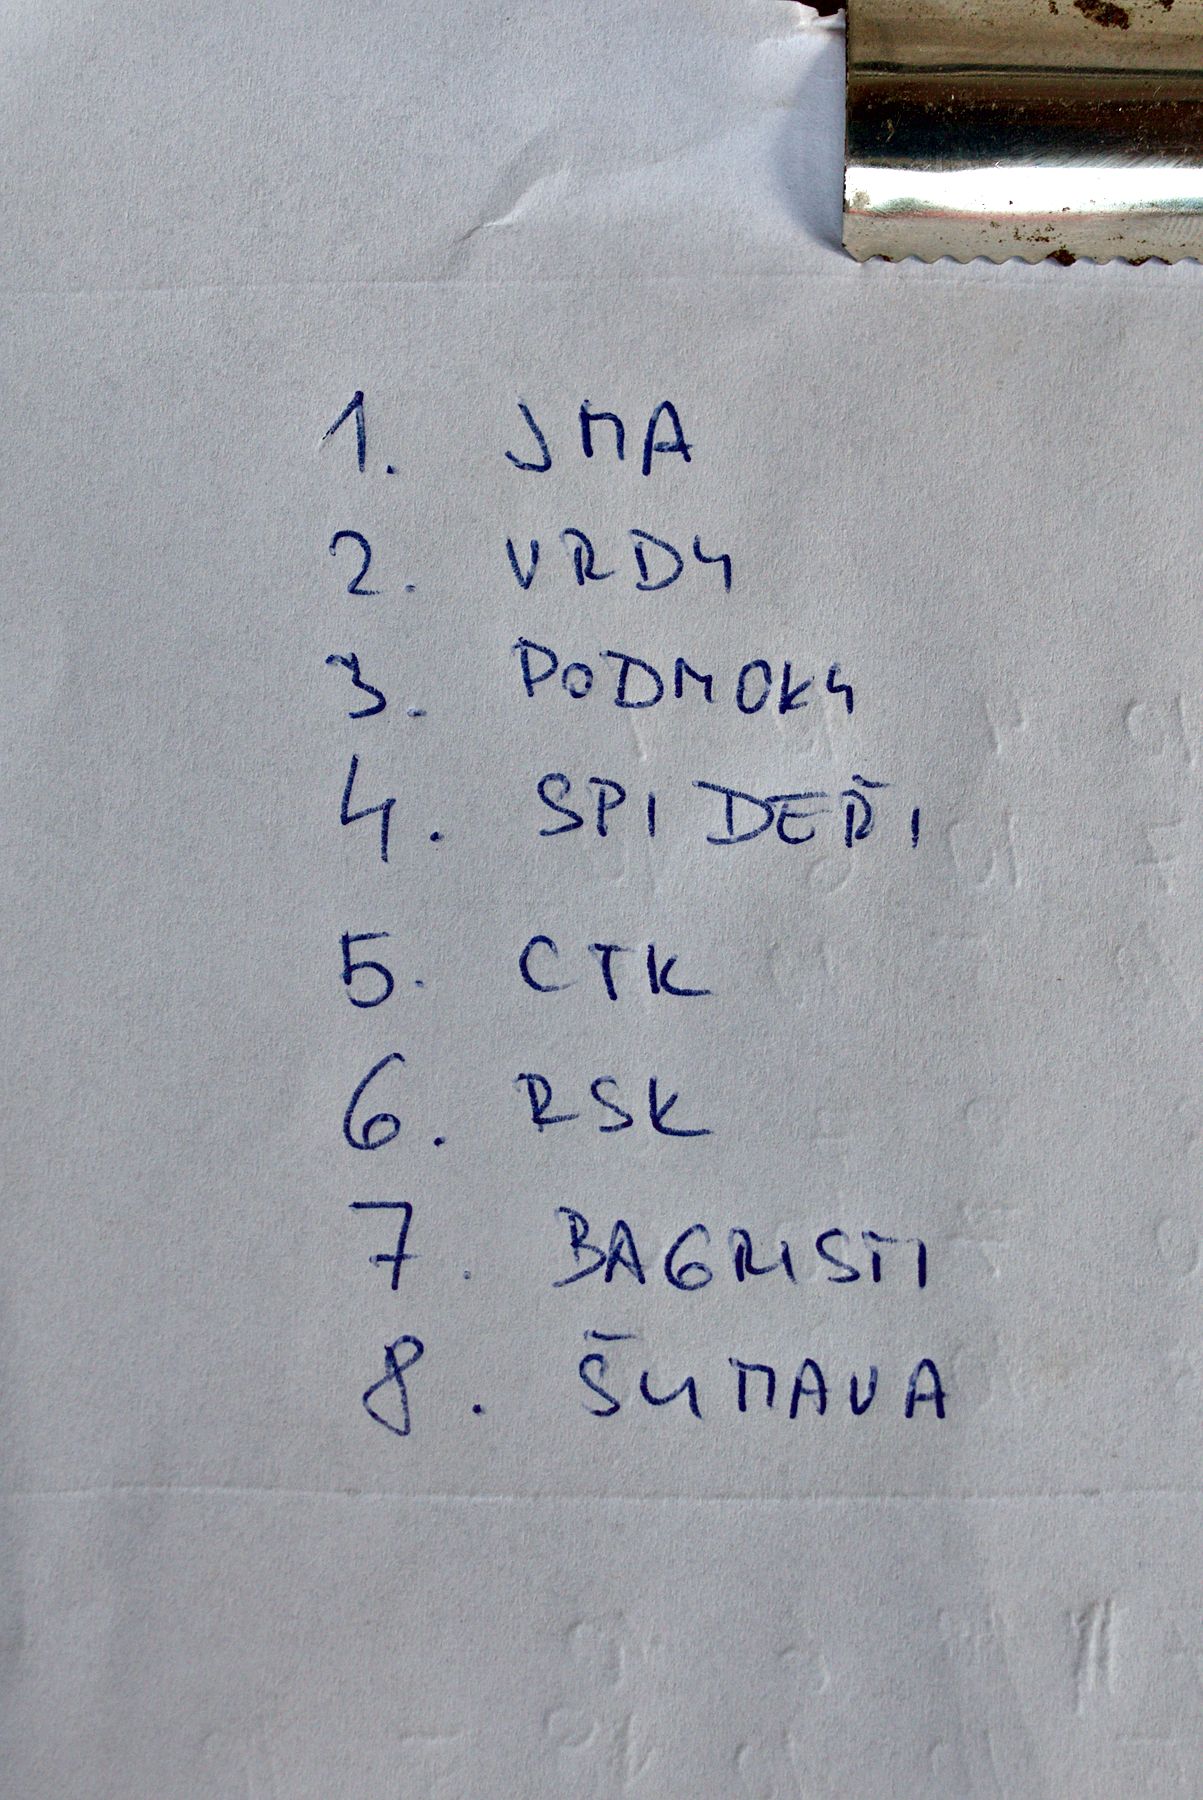 1. JMA
2. VRDY
3. PODMOKY
4. SPIDEŘI
5. CTK
6. RSK
7. BAGRISTI
8. ŠUMAVA